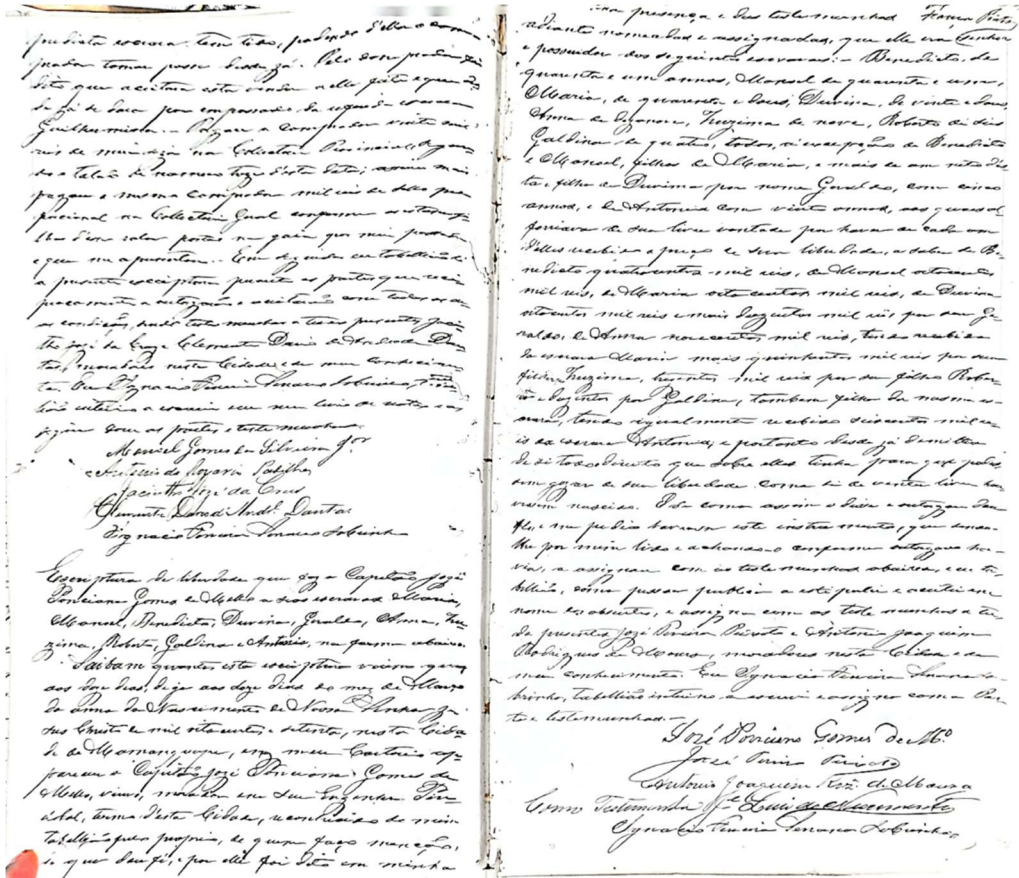 predicta escrava tem tido, podendo d'ella o com
prador tomar posse desde já. Pelo comprador foi
dito que aceitava esta venda a elle feita e que
da já se dava por empossado da agua de escrava
Guilhermina. Pagou o comprador vinte mil
reis de meia siza na Collectoria Provincial
do o talão de numero doze d'esta data; assim mais
pagou o mesmo comprador mil reis de sello pro
porcional na Collectoria Geral conforme a estampi
lha d'um valor posta na guia por mim passada
e que me apresentou. Em seguida eu tabellião li
a presente escriptura perante as partes que reci
procamente a outorgarão e aceitarão com todas as su
as condições, sendo testemunhas a tudo presentes Jacin
tho José da Cruz e Clemente David de Andrade Dan
tas, moradores nesta Cidade e de meu conhecimen
to. Eu Ignacio Ferreira Serrano Sobrinho,
lião interino a escrevi em meu livro de notas e as
signo com as partes e testemunhas
Manoel Gomes da Silveira Jor
Antonio do Rozario
Jacintho José da Cruz
Clemente David Andr. Dantas
Ignacio Ferreira Serrano Sobrinho
Escriptura de liberdade que faz o Capitão José
Ponciano Gomes de Mello a seus escravos Maria,
Manoel, Benedicto, Duvina, Geraldo, Anna,
Roberto, Galdina e Antonia, na forma abaixo
Saibam quantos esta escriptura virem que
aos doze dias, digo aos doze dias do mez de Março
do anno do Nascimento de Nosso Senhor Je
sus Christo de mil oitocentos e setenta, nesta Cida
de de Mamanguape, em meu Cartorio com
pareceu o Capitão José Ponciano Gomes de
Mello, viuvo, morador em seu Engenho
termo d'esta Cidade, reconhecido de mim
tabellião pelo proprio, de quem faço menção,
do que dou fé; e por elle foi dito em minha
presença e das testemunhas
adiante nomeadas e assignadas, que elle era Senhor
e possuidor dos seguintes escravos: Benedicto, de
quarenta e um annos, Manoel de quarenta e um,
Maria, de quarenta e dous, Duvina, de vinte e dous,
Anna de dezanove, de nove, Roberto de seis
Galdina de quatro, todos, a excepção de Benedicto
e Manoel, filhos de Maria, e mais de um neto des
ta e filho de Duvina por nome Geraldo, com cinco
annos, e de Antonia com vinte annos, aos quaes al
forriava de sua livre vontade por haver de cada um
d'elles recebido o preço de sua liberdade, a saber de Be
nedicto quatrocentos mil reis, de Manoel oitocentos
mil reis, de Maria oitocentos mil reis, de Duvina
oitocentos mil reis e mais duzentos mil reis por seu Ge
raldo, de Anna novecentos mil reis, tendo recebido
da escrava Maria mais quinhentos mil reis por sua
filha, trezentos mil reis por seu filho Rober
to e duzentos por Galdina, tambem filha da mesma es
crava, tendo igualmente recebido seiscentos mil re
is da escrava Antonia, e portanto desde já demittia
de si todo direito que sobre elles tinha para que podes
sem gozar de sua liberdade como se de ventre livre hou
vessem nascido. E de como assim o disse e outorgou dou
fé, e me pedio lavrasse este instrumento, que sendo
lhe por mim lido e achando-o conforme outorgado ha
via, o assignou com as testemunhas abaixo, e eu ta
bellião, como pessoa publica a estipulei e aceitei em
nome do absente, e assigna com as testemunhas a tu
do presentes José Pereira Peixoto e Antonio Joaquim
Rodrigues de Moura, moradores nesta Cidade e de
meu conhecimento. Eu Ignacio Ferreira Serrano So
brinho, tabellião interino a escrevi e assigno com a Par
te e testemunhas.
José Ponciano Gomes de Mo.
José Pereira Peixoto
Antonio Joaquim Roiz de Moura
Como Testemunha
Ignacio Ferreira Serrano Sobrinho